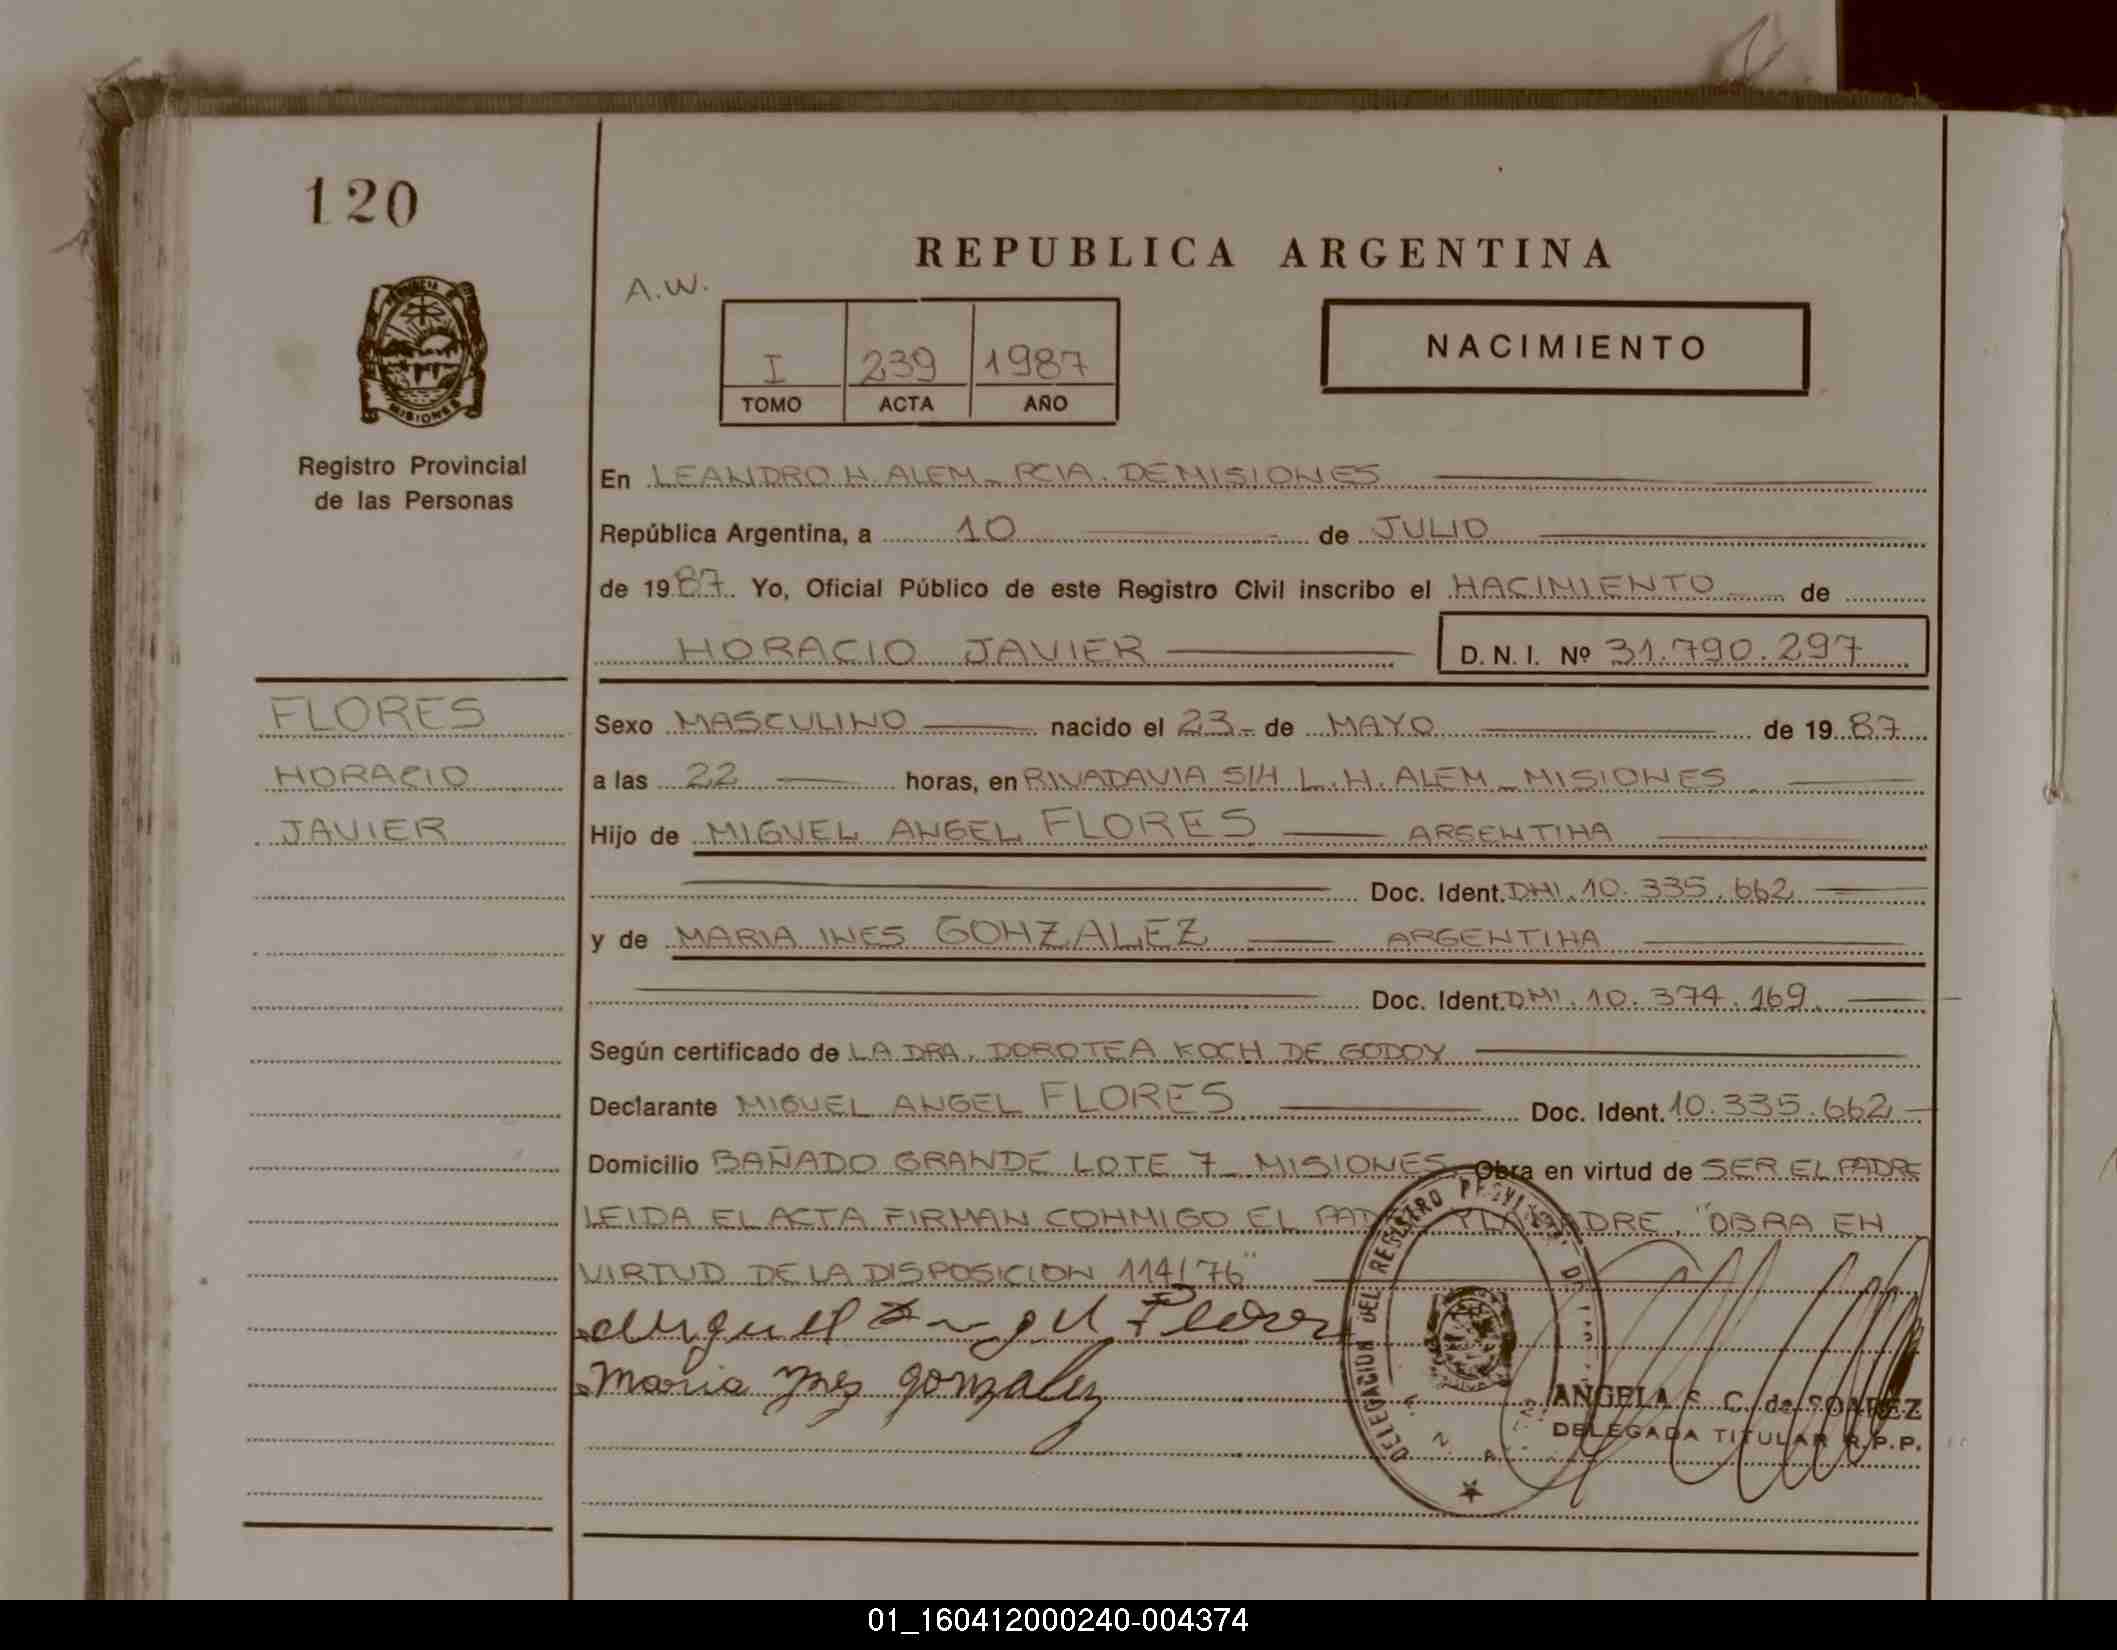 120
REPUBLICA ARGENTINA
A.W.
I 239 1987
TOMO ACTA AÑO
NACIMIENTO
MISIONES
Registro Provincial
de las Personas
En LEANDRO N. ALEM - PCIA. DE MISIONES
República Argentina, a 10 de JULIO
de 1987. Yo, Oficial Público de este Registro Civil inscribo el NACIMIENTO de
HORACIO JAVIER D.N.I. Nº 31.790.297
FLORES
HORACIO
JAVIER
Sexo MASCULINO nacido el 23 - de MAYO de 1987
a las 22 horas, en RIVADAVIA S/N L.N. ALEM - MISIONES
Hijo de MIGUEL ANGEL FLORES ARGENTINA
Doc. Ident. DNI. 10.335.662
y de MARIA INES GONZALEZ ARGENTINA
Doc. Ident. DNI. 10.374.169
Según certificado de LA DRA. DOROTEA KOCH DE GODOY
Declarante MIGUEL ANGEL FLORES Doc. Ident. 10.335.662
Domicilio BAÑADO GRANDE LOTE 7 - MISIONES Obra en virtud de SER EL PADRE
LEIDA EL ACTA FIRMAN CONMIGO EL PADRE Y LA MADRE. "OBRA EN
VIRTUD DE LA DISPOSICION 114/76"
Miguel Angel Flores
Maria Ynes gonzalez
DELEGACION DEL REGISTRO
ANGELA S. C. de SOAREZ
DELEGADA TITULAR R.P.P.
01_160412000240-004374